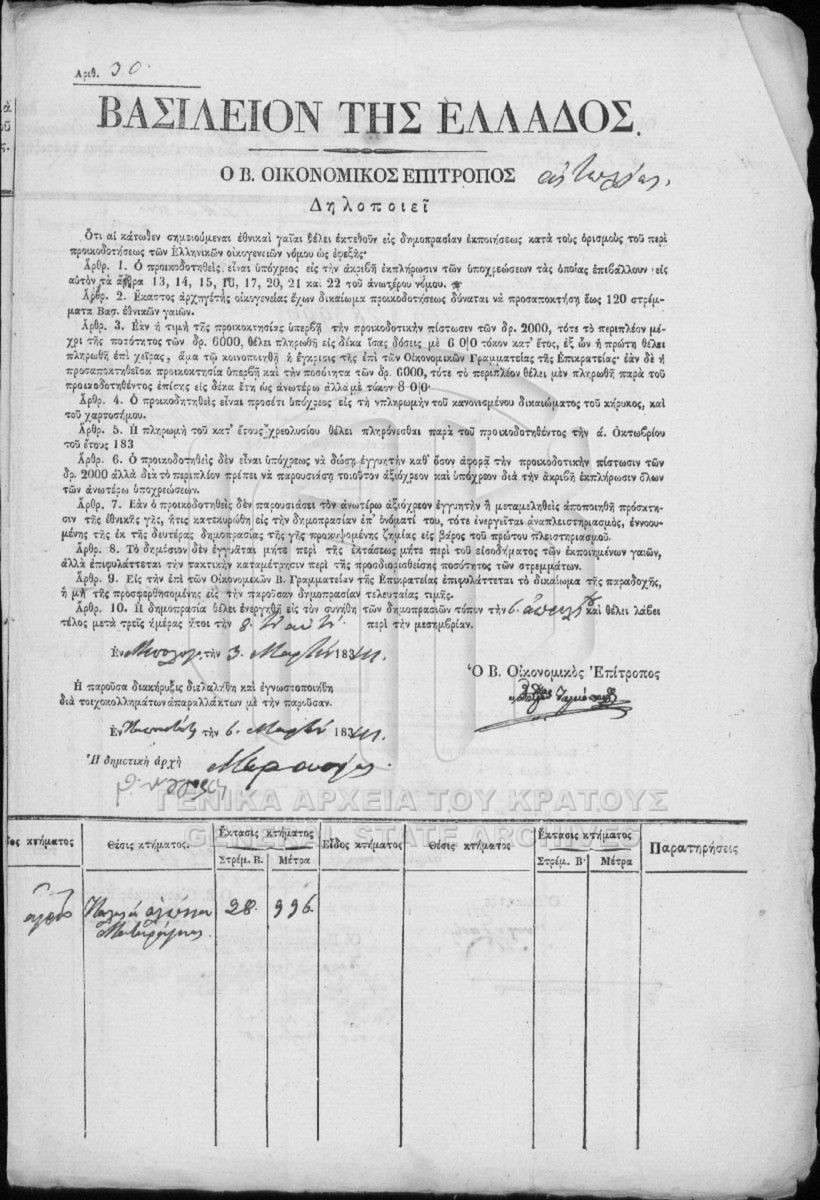 Αριθ. 30.
ΒΑΣΙΛΕΙΟΝ ΤΗΣ ΕΛΛΑΔΟΣ.
Ο Β. ΟΙΚΟΝΟΜΙΚΟΣ ΕΠΙΤΡΟΠΟΣ
Δηλοποιεῖ
Ὅτι αἱ κάτωθεν σημειούμεναι ἐθνικαὶ γαῖαι θέλει ἐκτεθοῦν εἰς δημοπρασίαν ἐκποιήσεως κατὰ τοὺς ὁρισμοὺς τοῦ περὶ
προικοδοτήσεως τῶν Ἑλληνικῶν οἰκογενειῶν νόμου ὡς ἐφεξῆς·
Ἄρθρ. 1. Ὁ προικοδοτηθεὶς εἶναι ὑπόχρεος εἰς τὴν ἀκριβῆ ἐκπλήρωσιν τῶν ὑποχρεώσεων τὰς ὁποίας ἐπιβάλλουν εἰς
αὐτὸν τὰ ἄρθρα 13, 14, 15, 16, 17, 20, 21 καὶ 22 τοῦ ἀνωτέρω νόμου.
Ἄρθρ. 2. Ἕκαστος ἀρχηγέτης οἰκογενείας ἔχων δικαίωμα προικοδοτήσεως δύναται νὰ προσαποκτήσῃ ἕως 120 στρέμ-
ματα Βασ. ἐθνικῶν γαιῶν.
Ἄρθρ. 3. Ἐὰν ἡ τιμὴ τῆς προικοκτησίας ὑπερβῇ τὴν προικοδοτικὴν πίστωσιν τῶν δρ. 2000, τότε τὸ περιπλέον μέ-
χρι τῆς ποσότητος τῶν δρ. 6000, θέλει πληρωθῆ εἰς δέκα ἴσας δόσεις μὲ 6 0|0 τόκον κατ' ἔτος, ἐξ ὧν ἡ πρώτη θέλει
πληρωθῆ ἐπὶ χεῖρας, ἅμα τῷ κοινοποιηθῆ ἡ ἔγκρισις τῆς ἐπὶ τῶν Οἰκονομικῶν Γραμματείας τῆς Ἐπικρατείας· ἐὰν δὲ ἡ
προσαποκτηθεῖσα προικοκτησία ὑπερβῇ καὶ τὴν ποσότητα τῶν δρ. 6000, τότε τὸ περιπλέον θέλει μὲν πληρωθῆ παρὰ τοῦ
προικοδοτηθέντος ἐπίσης εἰς δέκα ἔτη ὡς ἀνωτέρω ἀλλὰ μὲ τόκον 8 0|0
Ἄρθρ. 4. Ὁ προικοδοτηθεὶς εἶναι προσέτι ὑπόχρεος εἰς τὴν πληρωμὴν τοῦ κανονισμένου δικαιώματος τοῦ κήρυκος, καὶ
τοῦ χαρτοσήμου.
Ἄρθρ. 5. Ἡ πληρωμὴ τοῦ κατ' ἔτους χρεολυσίου θέλει πληρόνεσθαι παρὰ τοῦ προικοδοτηθέντος τὴν ά. Ὀκτωβρίου
τοῦ ἔτους 183
Ἄρθρ. 6. Ὁ προικοδοτηθεὶς δὲν εἶναι ὑπόχρεως νὰ δώσῃ ἐγγυητὴν καθ' ὅσον ἀφορᾷ τὴν προικοδοτικὴν πίστωσιν τῶν
δρ. 2000 ἀλλὰ διὰ τὸ περιπλέον πρέπει νὰ παρουσιάσῃ τοιοῦτον ἀξιόχρεον καὶ ὑπόχρεον διὰ τὴν ἀκριβῆ ἐκπλήρωσιν ὅλων
τῶν ἀνωτέρω ὑποχρεώσεων.
Ἄρθρ. 7. Ἐὰν ὁ προικοδοτηθεὶς δὲν παρουσιάσει τὸν ἀνωτέρω ἀξιόχρεον ἐγγυητὴν ἢ μεταμεληθεὶς ἀποποιηθῆ πρόσκτη-
σιν τῆς ἐθνικῆς γῆς, ἥτις κατεκυρώθη εἰς τὴν δημοπρασίαν ἐπ' ὀνόματί του, τότε ἐνεργεῖται ἀναπλειστηριασμός, ἐννοου-
μένης τῆς ἐκ τῆς δευτέρας δημοπρασίας τῆς γῆς προκυψομένης ζημίας εἰς βάρος τοῦ πρώτου πλειστηριασμοῦ.
Ἄρθρ. 8. Τὸ δημόσιον δὲν ἐγγυᾶται μήτε περὶ τῆς ἐκτάσεως μήτε περὶ τοῦ εἰσοδήματος τῶν ἐκποιημένων γαιῶν,
ἀλλὰ ἐπιφυλάττεται τὴν τακτικὴν καταμέτρησιν περὶ τῆς προσδιορισθείσης ποσότητος τῶν στρεμμάτων.
Ἄρθρ. 9. Εἰς τὴν ἐπὶ τῶν Οἰκονομικῶν Β. Γραμματείαν τῆς Ἐπικρατείας ἐπιφυλάττεται τὸ δικαίωμα τῆς παραδοχῆς,
ἢ μὴ τῆς προσφερθησομένης εἰς τὴν παροῦσαν δημοπρασίαν τελευταίας τιμῆς.
Ἄρθρ. 10. Ἡ δημοπρασία θέλει ἐνεργηθῆ εἰς τὸν συνήθη τῶν δημοπρασιῶν τόπον τὴν 6. καὶ θέλει λάβει
τέλος μετὰ τρεῖς ἡμέρας ἤτοι τὴν 8. περὶ τὴν μεσημβρίαν.
Ἐν τὴν 3. Μαρτίου 18
Ὁ Β. Οἰκονομικὸς Ἐπίτροπος
Ἡ παροῦσα διακήρυξις διελαλήθη καὶ ἐγνωστοποιήθη
διὰ τοιχοκολλημάτων ἀπαραλλάκτων μὲ τὴν παροῦσαν.
Ἐν τὴν 6. Μαρτίου 18
Ἡ δημοτικὴ ἀρχὴ
ΓΕΝΙΚΑ ΑΡΧΕΙΑ ΤΟΥ ΚΡΑΤΟΥΣ
GENERAL STATE ARCHIVES
κτήματος Θέσις κτήματος. Ἔκτασις κτήματος Εἶδος κτήματος Θέσις κτήματος Ἔκτασις κτήματος Παρατηρήσεις
Στρέμ. Β. Μέτρα Στρέμ. Β· Μέτρα
ἀγρὸς 28. 996.